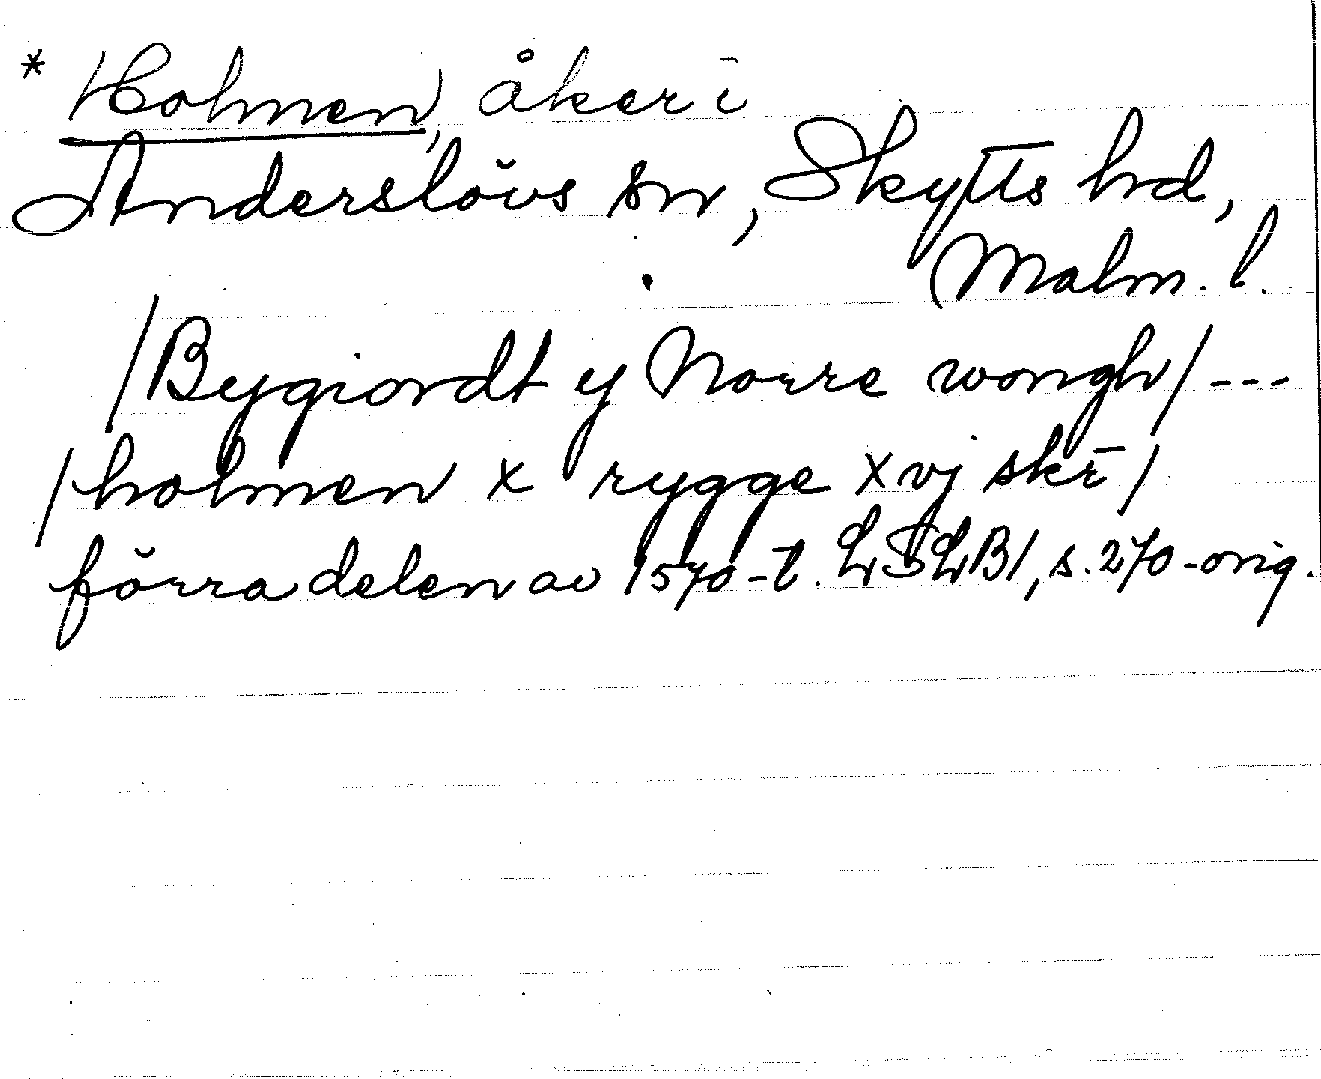 * Holmen, åker i
Anderslövs sn, Skytts hd,
Malm. l.
/Bygiordt y Norre wongh/ ---
/holmen x rygge xvj skr̄/
förra delen av 1570-t. LSLB1, s. 270-orig.